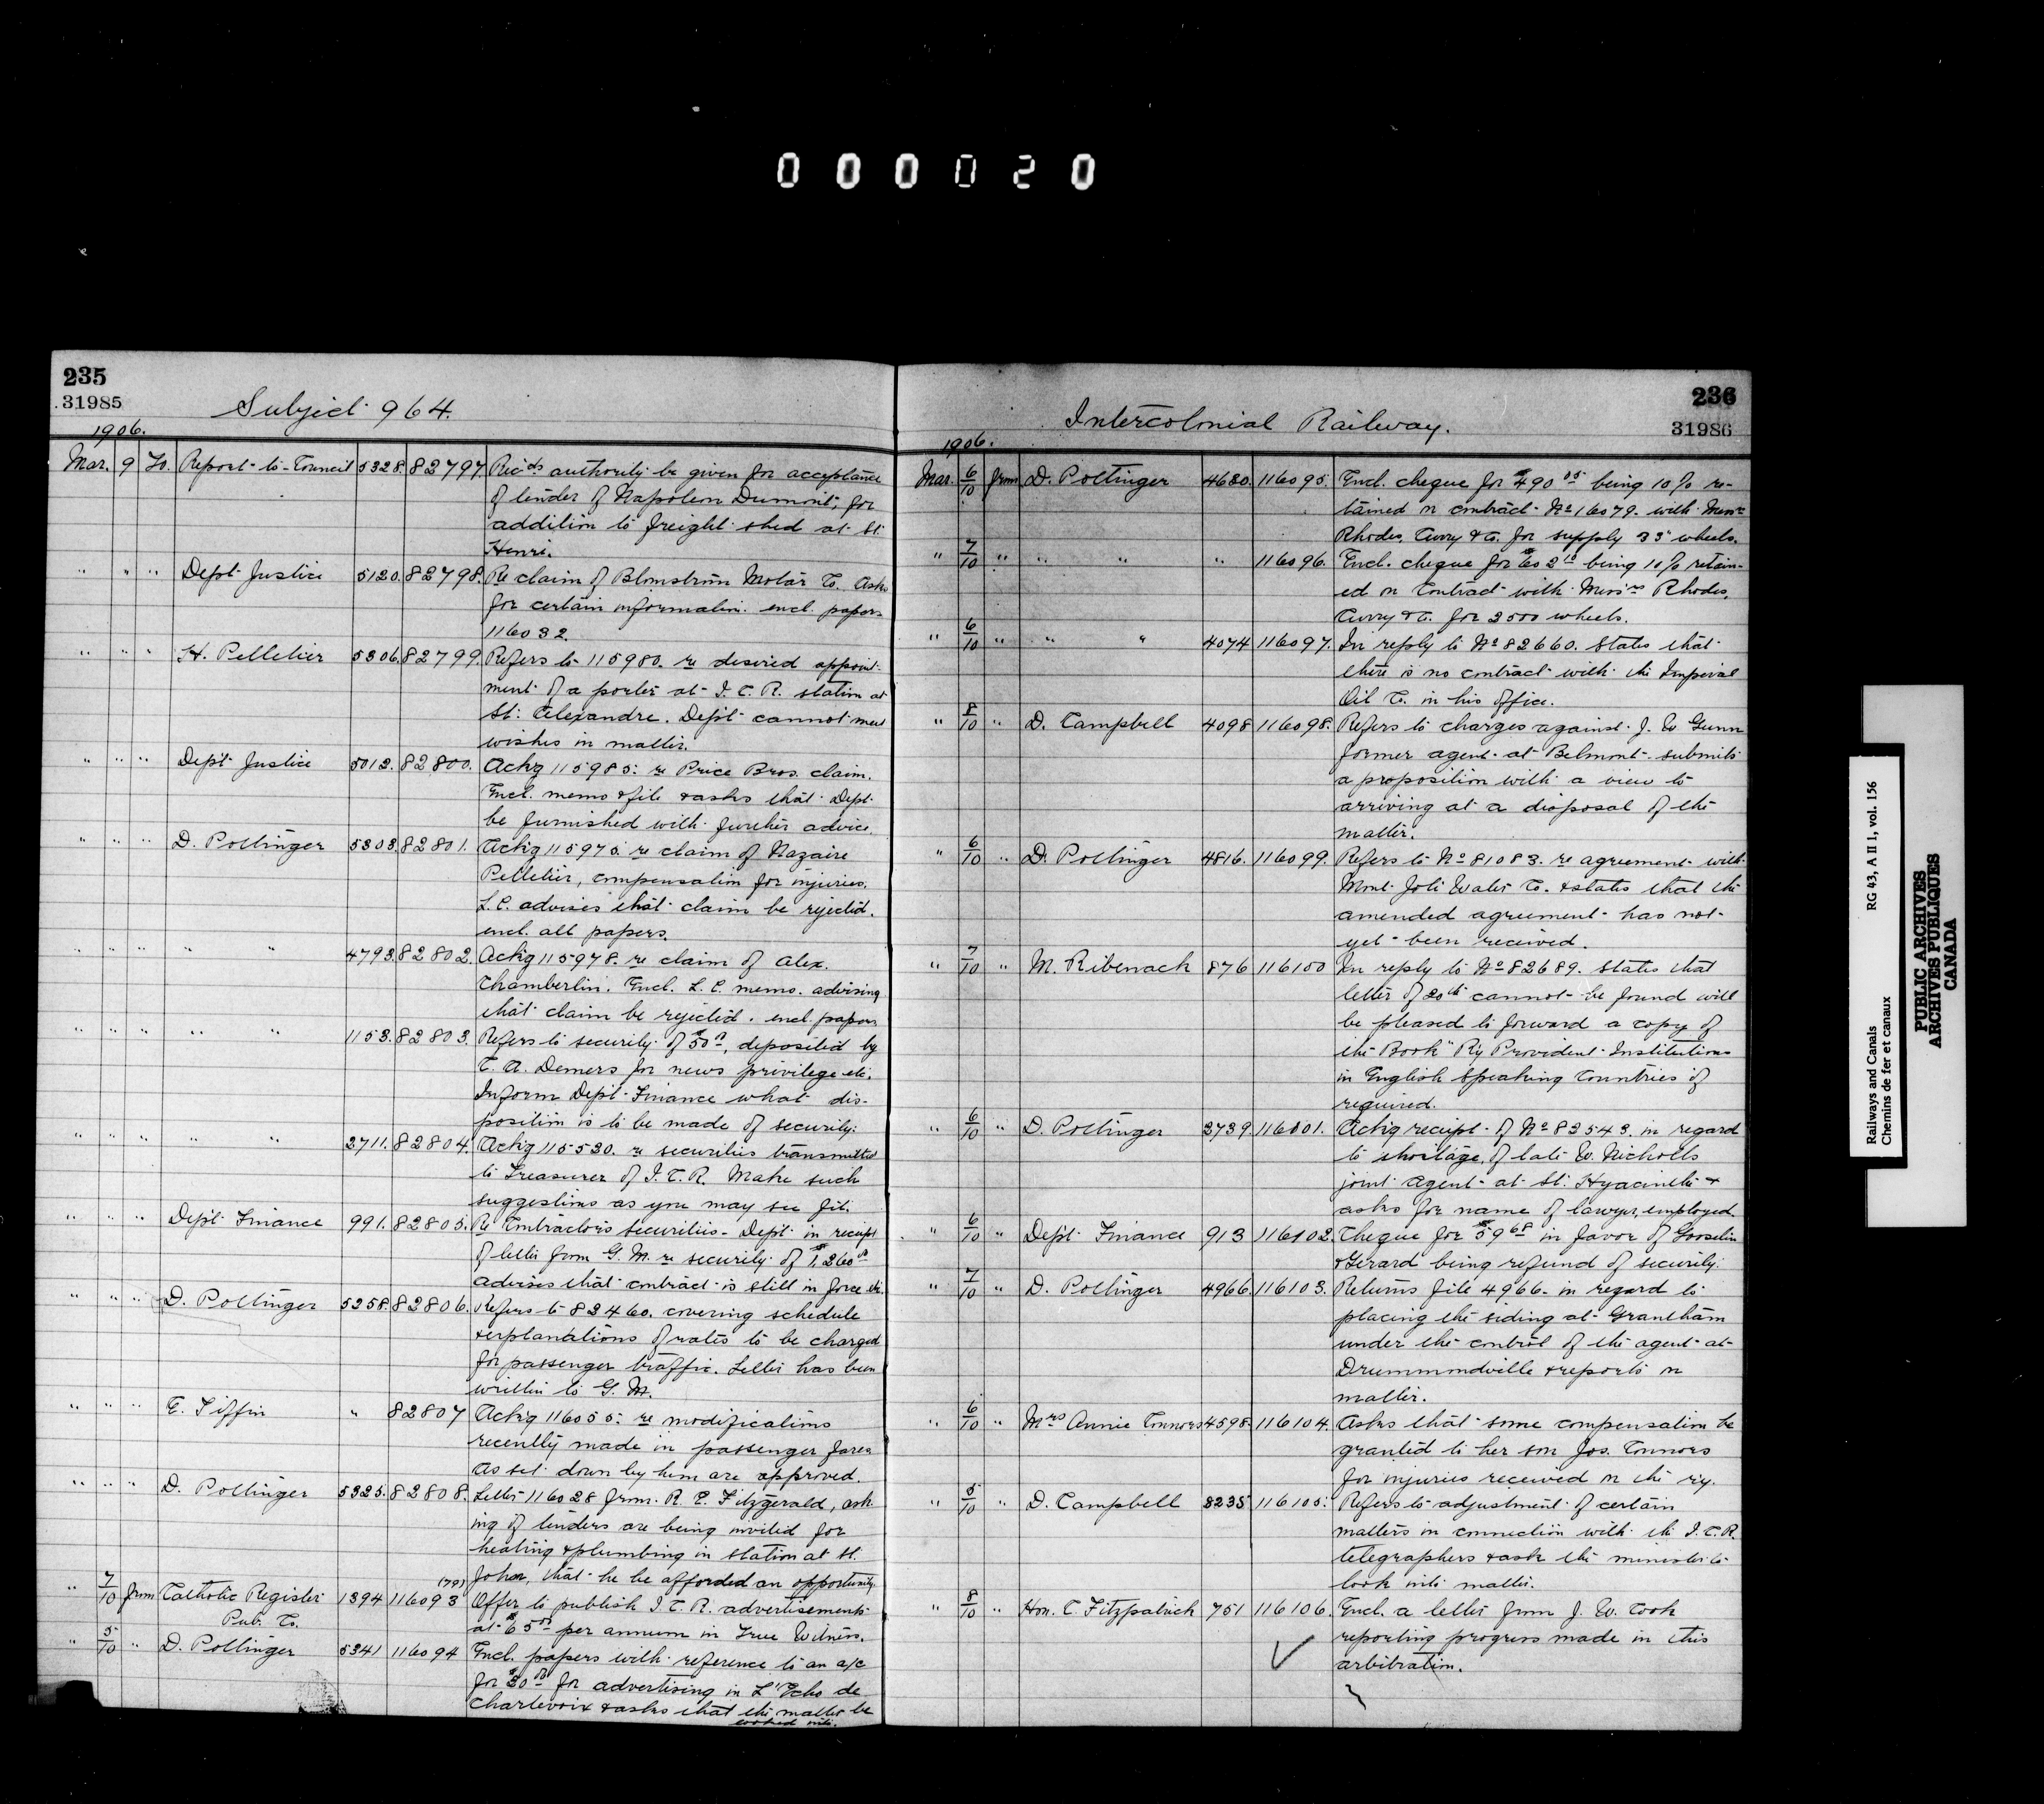 000020
235
31985
Subject 964.
1906.
Mar. 9 To. Report to Council 5328. 82797. Rec'ds authority be given for acceptance
of tender of Napoleon Dumont, for
addition to freight shed at St.
Henri.
" " " Dept Justice 5120. 82798. Re claim of Blomstrom Motor Co. Asks
for certain information. encl. papers
116032.
" " " H. Pelletier 5306. 82799. Refers to 115980. re desired appoint-
ment of a porter at I.C.R. station at
St. Alexandre. Dept cannot meet
wishes in matter.
" " " Dept Justice 5012. 82800. Ackg 115985. re Price Bros. claim.
Encl. memo & file & asks that Dept.
be furnished with further advice.
" " " D. Pottinger 5303. 82801. Ackg 115975. re claim of Nazaire
Pelletier, compensation for injuries.
L.C. advises that claim be rejected.
encl. all papers.
" " " " " 4793. 82802. Ackg 115978. re claim of Alex.
Chamberlin. Encl. L.C. memo. advising
that claim be rejected. encl. papers
" " " " " 1153. 82803. Refers to security of $50.00, deposited by
C. A. Demers for news privilege etc.
Inform Dept Finance what dis-
position is to be made of security.
" " " " " 2711. 82804. Ackg 115530. re securities transmitted
to Treasurer of I.C.R. Make such
suggestions as you may see fit.
" " " Dept Finance 991. 82805. Re Contractor's securities - Dept. in receipt
of letter from G.M. re security of $1,260.00
advises that contract is still in force etc.
" " " D. Pottinger 5258. 82806. Refers to 82460. covering schedule
& explanations of rates to be charged
for passenger traffic. Letter has been
written to G.M.
" " " E. Tiffin " 82807 Ackg 116055. re modifications
recently made in passenger fares
As set down by him are approved.
" " " D. Pottinger 5325. 82808. Letter 116028 from R. E. Fitzgerald, ask-
ing if tenders are being invited for
heating & plumbing in station at St.
John, that he be afforded an opportunity.
" 7/10 from Catholic Register 1394 116093 (79) Offer to publish I.C.R. advertisements
Pub. Co. at $65.00 per annum in True Witness.
" 5/10 " D. Pottinger 5341 116094 Encl. papers with reference to an a/c
for $30.00 for advertising in L'Echo de
Charlevoix & asks that the matter be
looked into.
236
31986
Intercolonial Railway.
1906.
Mar. 6/10 from D. Pottinger 4680. 116095. Encl. cheque for $490.05 being 10% re-
tained on contract No 16079. with Messrs
Rhodes, Curry & Co. for supply 33" wheels.
" 7/10 " " " " 116096. Encl. cheque for $602.10 being 10% retain-
ed on Contract with Mess'rs Rhodes,
Curry & Co. for 2500 wheels.
" 6/10 " " " 4074 116097. In reply to No 82660. States that
there is no contract with the Imperial
Oil Co. in his office.
" 8/10 " D. Campbell 4098 116098. Refers to charges against J. W. Gunn
former agent at Belmont - submits
a proposition with a view to
arriving at a disposal of the
matter.
" 6/10 " D. Pottinger 4816. 116099. Refers to No 81083. re agreement with
Mont Joli Water Co. & states that the
amended agreement has not
yet been received.
" 7/10 " M. Ribenack 876 116100 In reply to No 82689. States that
letter of 20th cannot be found will
be pleased to forward a copy of
the Book "Ry Provident Institutions
in English Speaking Countries if
required.
" 6/10 " D. Pottinger 2739. 116101. Ackg receipt of No 82543. in regard
to shortage, of late W. Nicholls
joint agent at St. Hyacinthe &
asks for name of lawyer, employed.
" 6/10 " Dept Finance 913 116102. Cheque for $59.68 in favor of Gosselin
& Gerard being refund of security.
" 7/10 " D. Pottinger 4966. 116103. Returns file 4966 in regard to
placing the siding at Grantham
under the control of the agent at
Drummondville & reports on
matter.
" 6/10 " Mrs Annie Connors 4598. 116104. Asks that some compensation be
granted to her son Jos. Connors
for injuries received on the ry.
" 5/10 " D. Campbell 8235 116105. Refers to adjustment of certain
matters in connection with the I.C.R.
telegraphers & ask the minister to
look into matter.
" 8/10 " Hon. C. Fitzpatrick 751 116106. Encl. a letter from J. W. Cook
reporting progress made in this
arbitration.
Railways and Canals RG 43, A II 1, vol. 156
Chemins de fer et canaux
PUBLIC ARCHIVES
ARCHIVES PUBLIQUES
CANADA